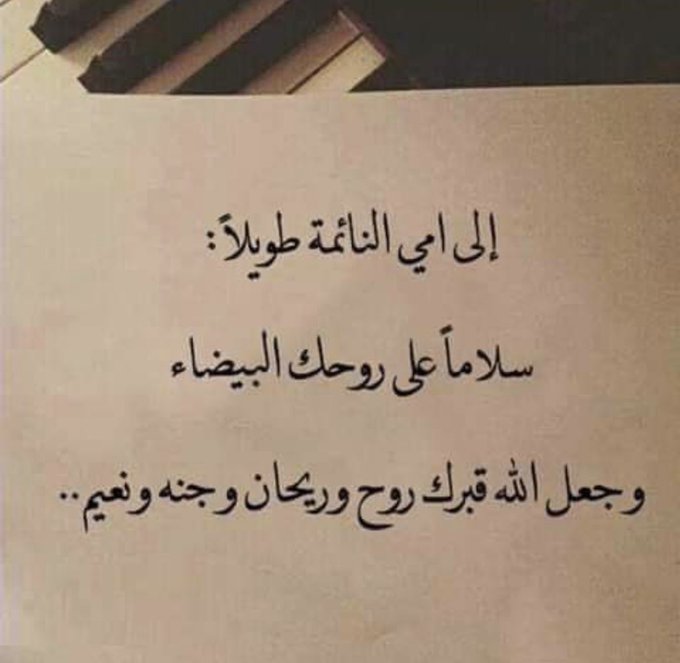 إلى امي النائمة طويلاً :
سلاماً على روحك البيضاء
وجعل الله قبرك روح وريحان وجنه ونعيم..